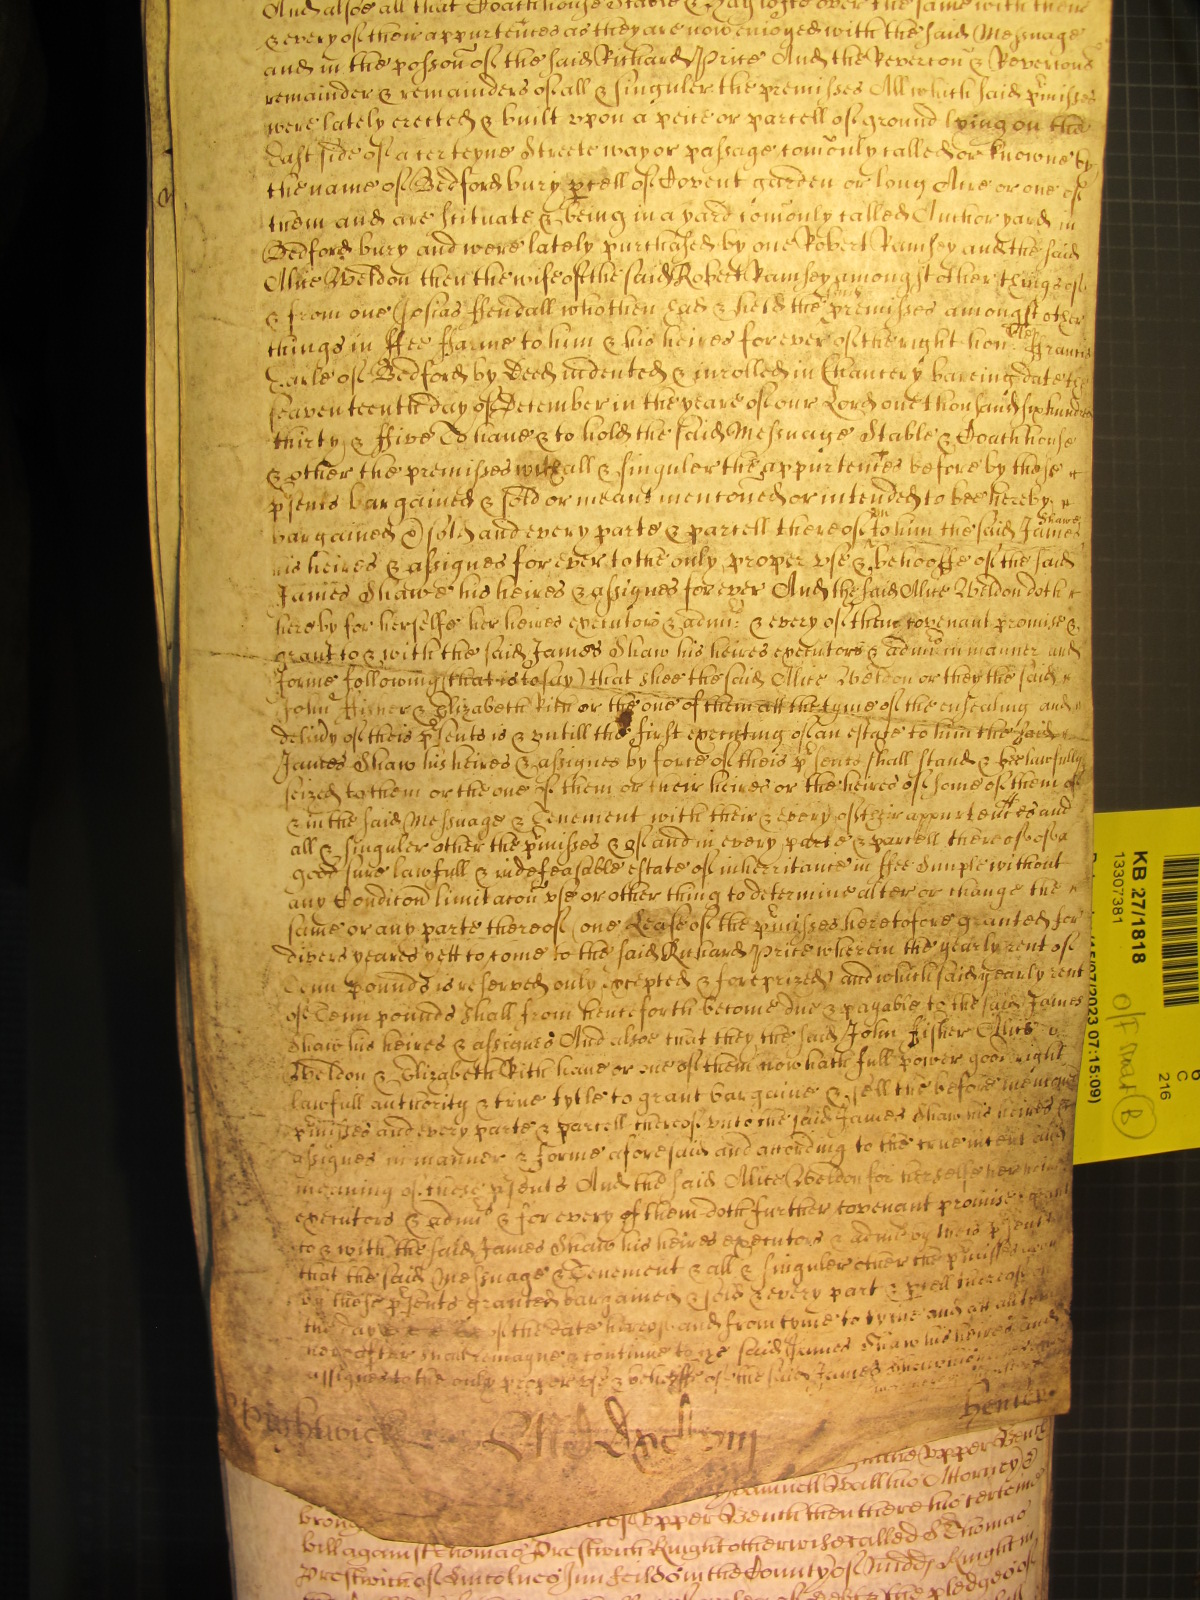 And alsoe all that Coachhouse Stable & Haylofte over the same with their
& every of their appurtences as they are now enioyed with the said Messuage
and in the possion of the said Richard Price And the Revercon & Revercons
remainder & remainders of all & singuler the premisses All which said pmisses
were lately erected & built vpon a peice or parcell of ground lying on the
East side of a certeyne Streete way or passage comonly called or knowne by
the name of Bedford bury pcell of Covent garden or long Acre or one of
them and are scituate & being in a yard comonly called Anchor yard in
Bedford bury and were lately purchased by one Robert Ramsey and the said
Alice Weldon then the wife of the said Robert Ramsey amongst other things of
& from one Josias ffendall who then had & held the same premisses amongst other
things in ffee ffarme to him & his heires for ever of the right hon: ffrancis
Earle of Bedford by Deed indented & inrolled in Chancery bareing date the
seaventeenth day of December in the yeare of our Lord one thousand six hundred
thirty & ffive To haue & to hold the said Messuage Stable & Coachhouse
& other the premisses with all & singuler the appurtences before by these
psents bargained & sold or meant mentoned or intended to bee hereby
bargained & sold and every parte & parcell thereof vnto him the said James Shawe
his heires & assignes for ever to the only proper vse & behooffe of the said
James Shawe his heires & assignes for ever And the said Alice Weldon doth
hereby for herselfe her heires executors & admi: & every of them covenant promise &
grant to & with the said James Shaw his heires executors & admi in manner and
forme following (that is to say) that shee the said Alice Weldon or they the said
John Fisher & Elizabeth Rich or the one of them att the tyme of the ensealing and
delivy of theis psents is & vntill the first executing of an estate to him the said
James Shaw his heires & assignes by force of theis psents shall stand & bee lawfully
seized to them or the one of them or their heires or the heires of some of them of
& in the said Messuage & Tenement with their & every of their appurtences and
all & singuler other the pmisses & of and in every parte & parcell thereof of a
good sure lawfull & indefeasable estate of inherritance in ffee Simple without
any Condicon limitacon vse or other thing to determine alter or change the
same or any parte thereof (one Lease of the pmisses heretofore granted for
divers yeares yett to come to the said Richard Price wherein the yearly rent of
Tenn pounds is reserved only excepted & foreprized) and which said yearly rent
of Tenn pounds shall from henceforth become due & payable to the said James
Shaw his heires & assignes And alsoe that they the said John Fisher Alice
Weldon & Elizabeth Rich haue or one of them now hath full power good right
lawfull authority & true tytle to grant bargaine & sell the before menconed
pmisses and every parte & parcell thereof vnto the said James Shaw his heires &
assignes in manner & forme aforesaid and according to the true intent and
meaning of these psents And the said Alice Weldon for herselfe her heires
executors & admi & for every of them doth further covenant promise & grant
to & with the said James Shaw his heires executors & admi by theis psents
that the said Messuage & Tenement & all & singuler other the pmisses
by these psents granted bargained & sold & every part & pcell thereof
the day of the date hereof and from tyme to tyme and att all tymes
hereafter shall remayne & continue to the said James Shaw his heires and
assignes to the only proper vse & behooffe of the said James Shaw his heires
Prestwick
Henley
Upper Bench
Samuell Attorney
Upper Bench then there his certeine
bill against Thomas Prestwich Knight otherwise called Sr Thomas
Prestwich of Lincolnes Inn feilds in the County of Midd Knight
the pledges of
KB 27/1818
13307381
O/F mar B
C
216
15/07/2023 07:15:09)